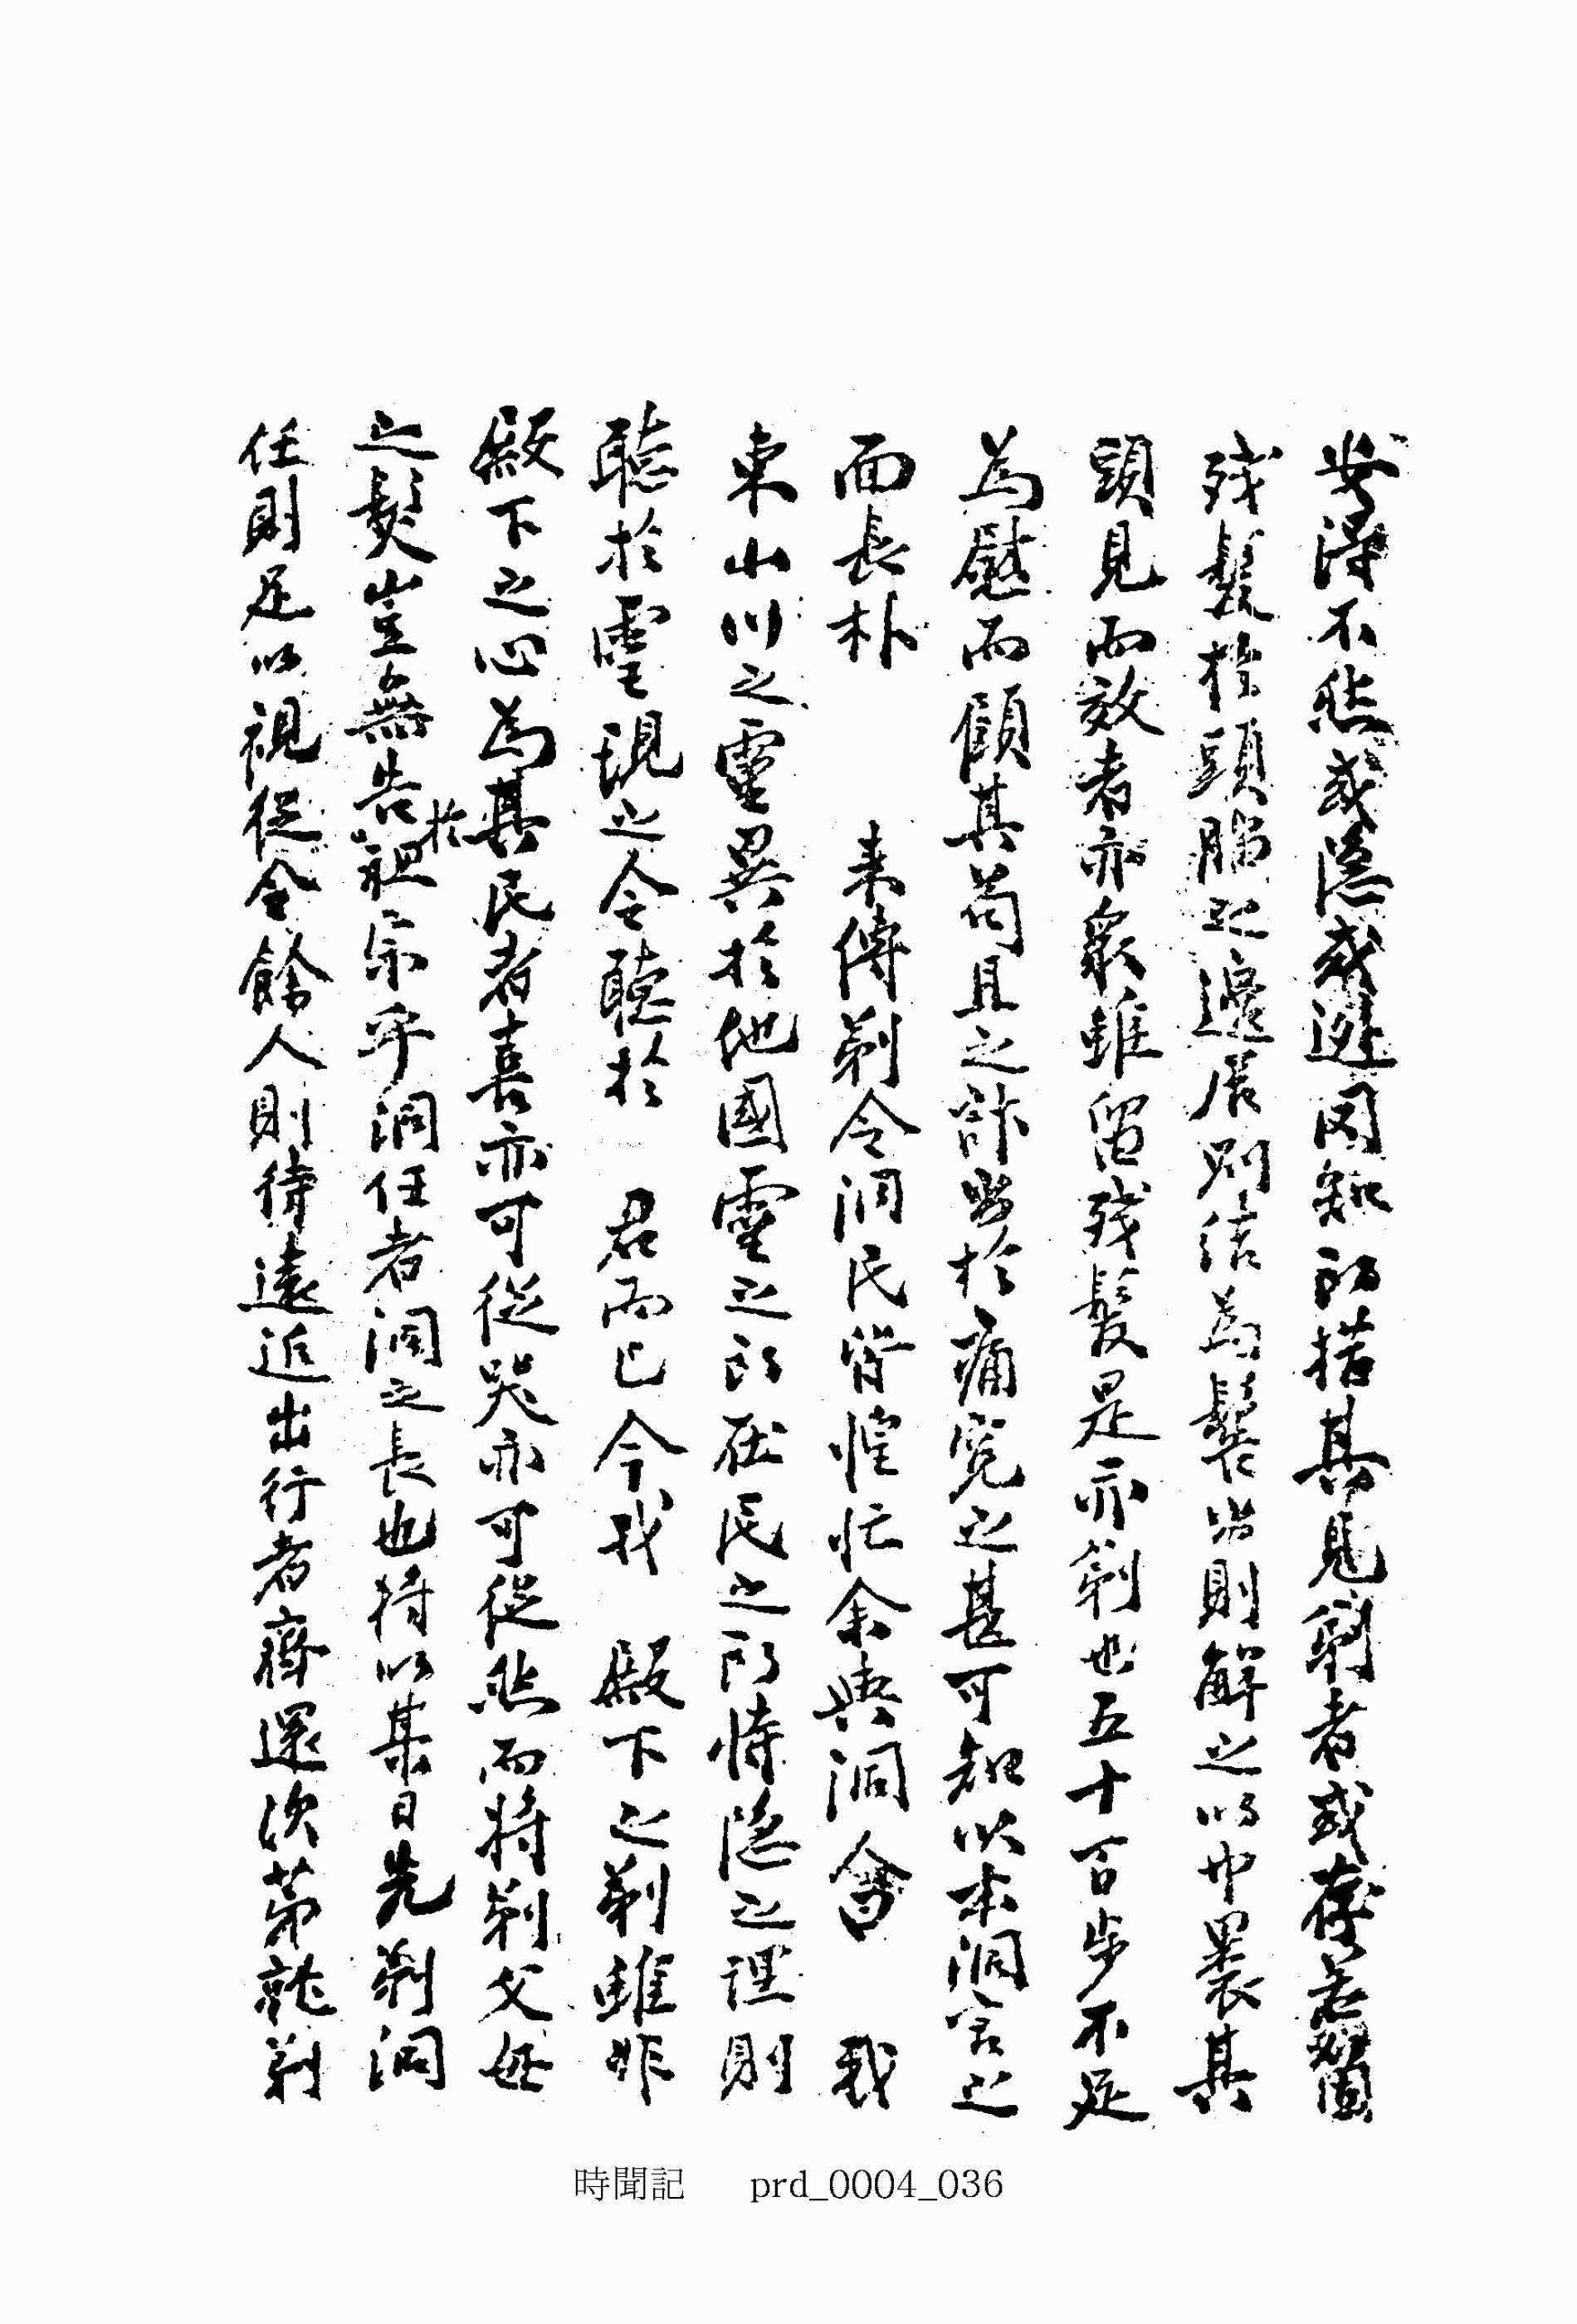 安得不愁或隱或遯罔知所措其見剃者或存若箇
殘髮於頭腦之邊居則結爲髻出則解之以巾裹其
頭見而效者亦衆雖留殘髮是亦剃也五十百步不足
爲慰而顧其苟且之計出於痛寃之甚可知以本洞言之
面長朴　　來傳剃令洞民皆惶忙余與洞會　我
東山川之靈異於他國靈之所在民之所恃隱之理則
聽於靈現之令聽於　君而已今我　殿下之剃雖非
殿下之心爲其民者喜亦可從哭亦可從然而將剃父母
之髮豈無告於祖宗乎洞任者洞之長也將以某日先剃洞
任則足以視從全餘人則待遠近出行者齊還次第就剃
時聞記　prd_0004_036